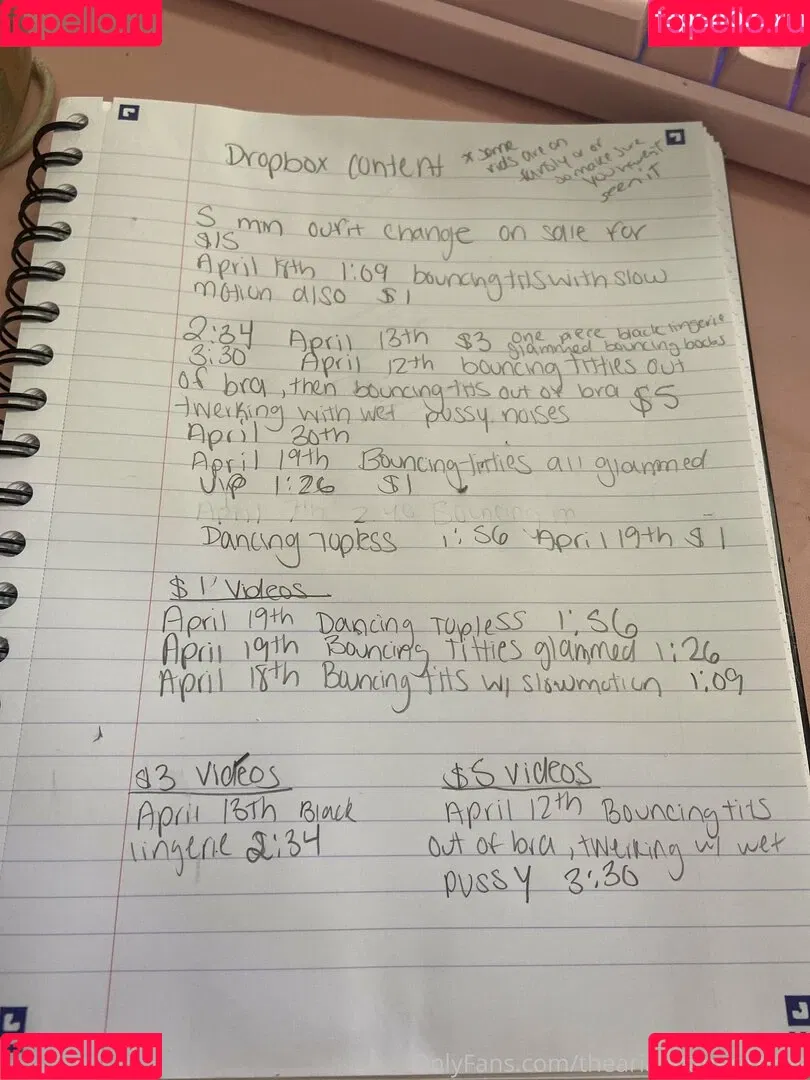 fapello.ru
fapello.ru
Dropbox content
* some
vids are on
so make sure
you haven't
seen it
5 min outfit change on sale for
$15
April 18th 1:09 bouncing tits with slow
motion also $1
2:34 April 13th $3 one piece black lingerie
glammed bouncing boobs
3:30 April 12th bouncing titties out
of bra, then bouncing tits out of bra $5
twerking with wet pussy noises
April 30th
April 19th Bouncing titties all glammed
up 1:26 $1
Dancing topless 1:56 April 19th $1
$1 Videos
April 19th Dancing topless 1:56
April 19th Bouncing titties glammed 1:26
April 18th Bouncing tits w/ slowmotion 1:09
$3 Videos
April 13th Black
lingerie 2:34
$5 videos
April 12th Bouncing tits
out of bra, twerking w/ wet
pussy 3:30
fapello.ru
OnlyFans.com/theari
fapello.ru